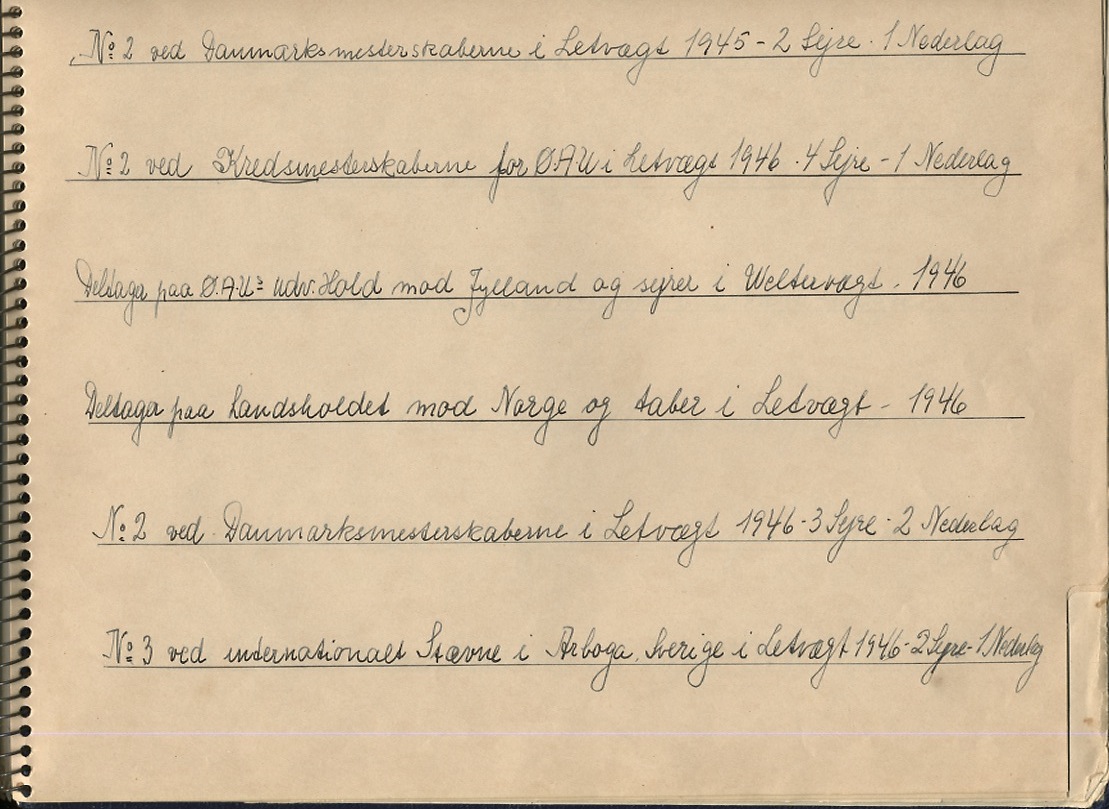 No 2 ved Danmarksmesterskaberne i Letvægt 1945 - 2 Sejre - 1 Nederlag
No 2 ved Kredsmesterskaberne for Ø.A.U i Letvægt 1946 - 4 Sejre - 1 Nederlag
Deltaga paa Ø.A.U's Udv. Hold mod Jylland og sejrer i Weltervægt - 1946
Deltaga paa Landsholdet mod Norge og taber i Letvægt - 1946
No 2 ved Danmarksmesterskaberne i Letvægt 1946 - 3 Sejre - 2 Nederlag
No 3 ved internationalt Stævne i Arboga, Sverige i Letvægt 1946 - 2 Sejre - 1 Nederlag